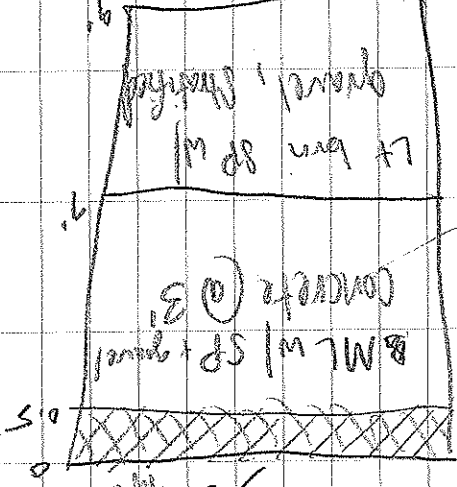 0
0.5
ML w/ SP + gravel
Concrete @ 3'
7'
Lt brn SP w/
gravel, stratified
9'